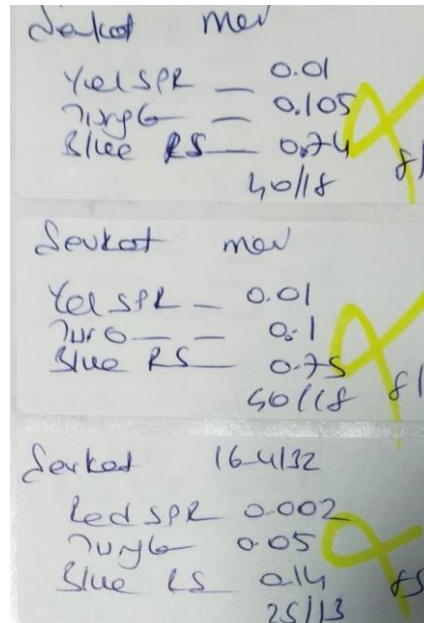 Sevkat mav
Yel SPR — 0.01
Turq G — 0.105
Blue RS — 0.74
40/18 8/
Sevkat mav
Yel SPR — 0.01
Turq G — 0.1
Blue RS — 0.75
40/18 8/
Sevkat 16-4132
Red SPR 0.002
Turq G 0.05
Blue RS 0.14
25/13 85